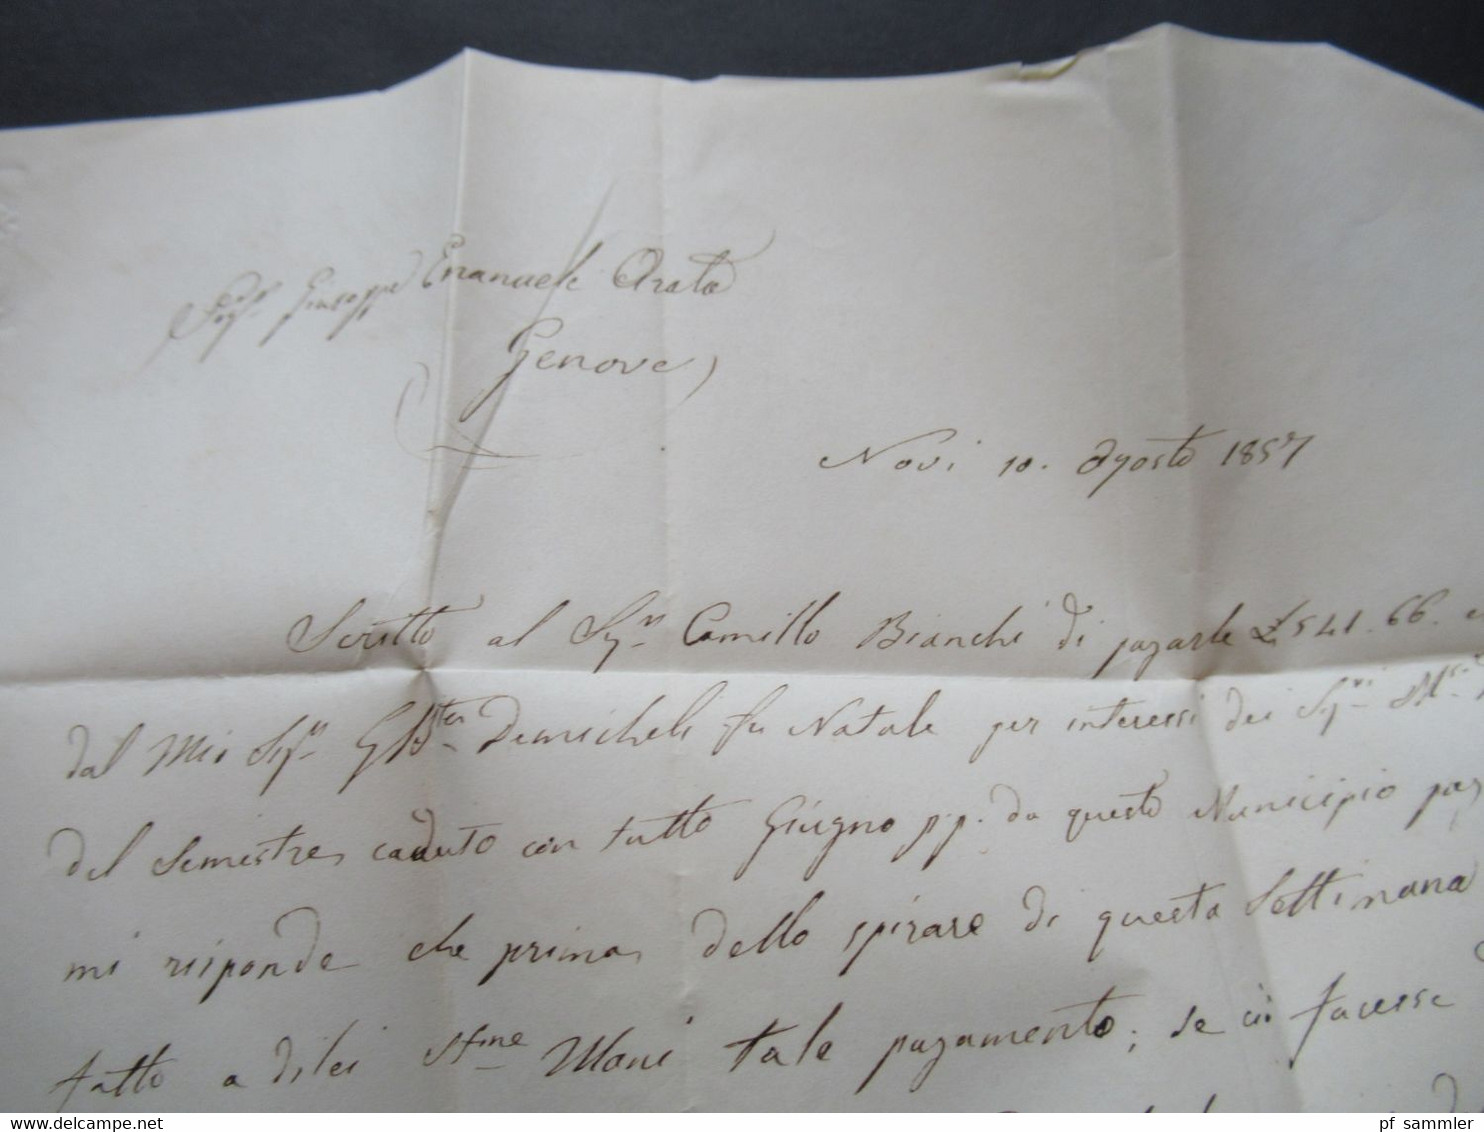 Sigr. Giuseppe Emanuele Arata
Genova
Novi 10. Agosto 1857
Scritto al Sigr. Camillo Bianchi di pagarle £ 541. 66. e
dal Mio Sigr. GBta. Demicheli fu Natale per interessi dei Sigri.
del Semestre caduto con tutto Giugno p.p. da questo Municipio pag
mi risponde che prima dello spirare di questa Settimana
fatto a di lei Stme. Mani tale pagamento; se ciò facesse
www.delcampe.net
pf_sammler